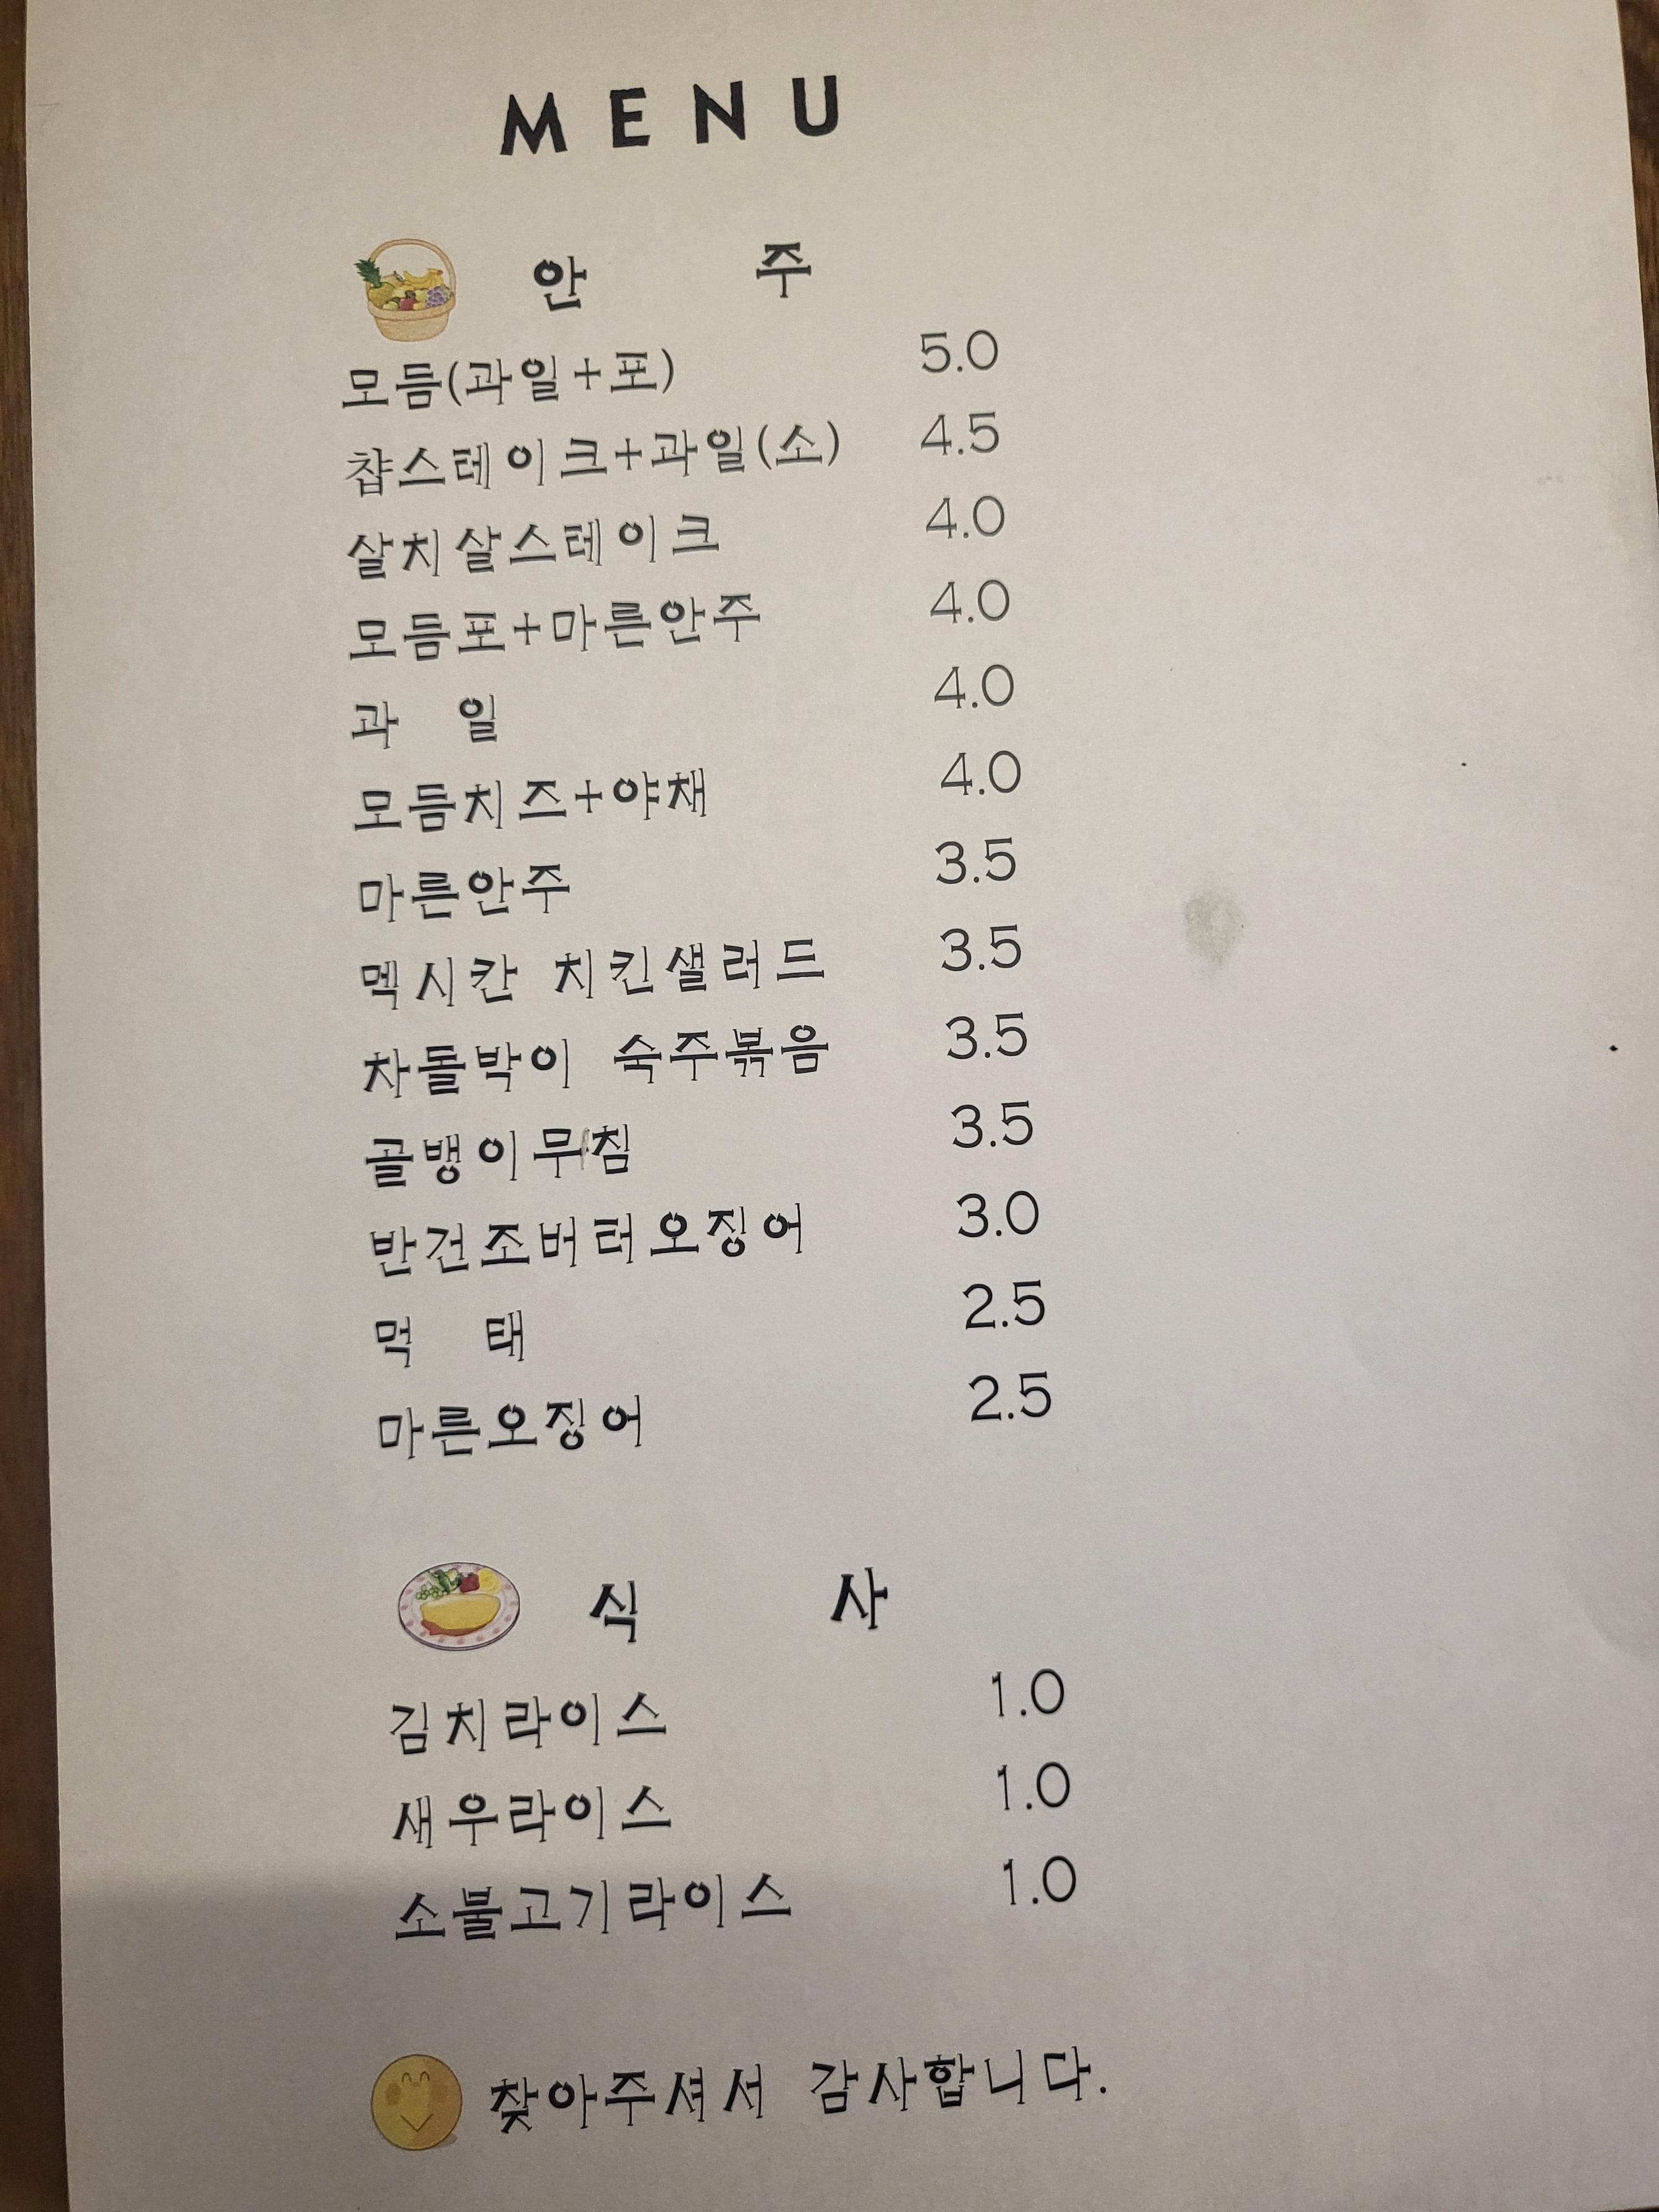 MENU
안 주
모듬(과일+포) 5.0
챱스테이크+과일(소) 4.5
살치살스테이크 4.0
모듬포+마른안주 4.0
과 일 4.0
모듬치즈+야채 4.0
마른안주 3.5
멕시칸 치킨샐러드 3.5
차돌박이 숙주볶음 3.5
골뱅이무침 3.5
반건조버터오징어 3.0
먹 태 2.5
마른오징어 2.5
식 사
김치라이스 1.0
새우라이스 1.0
소불고기라이스 1.0
찾아주셔서 감사합니다.